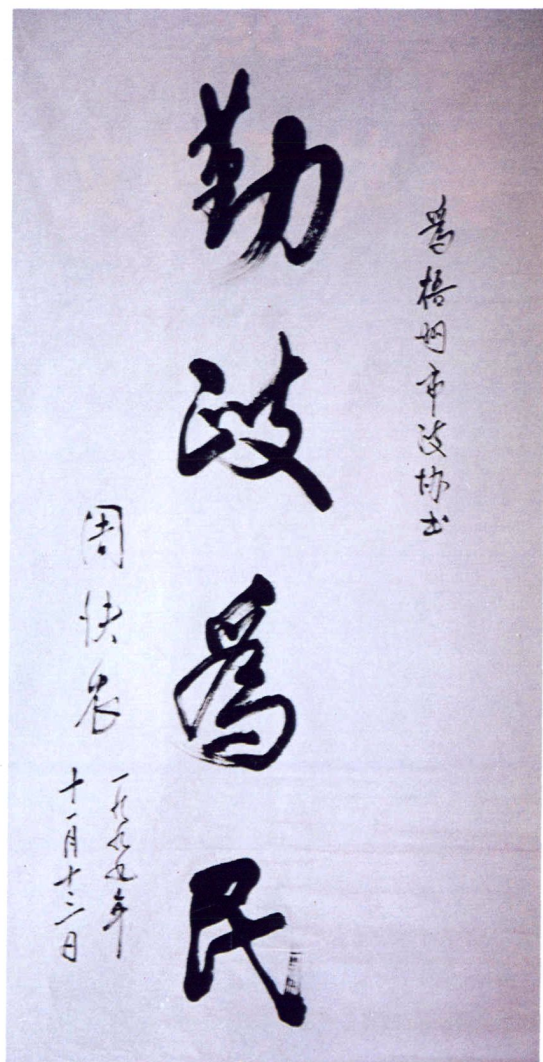 為梧州市政协书
勤政為民
周快农
一九九九年
十一月十三日